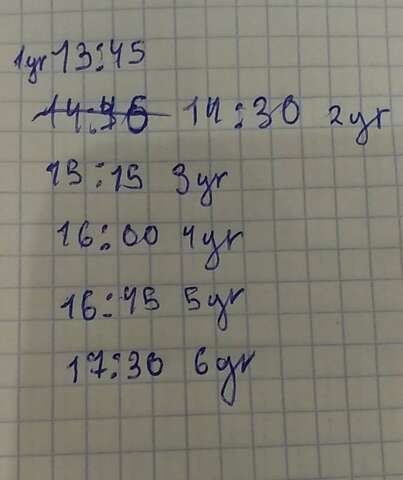 1yr 13:45
14:30 2yr
15:15 3yr
16:00 4yr
16:45 5yr
17:30 6yr